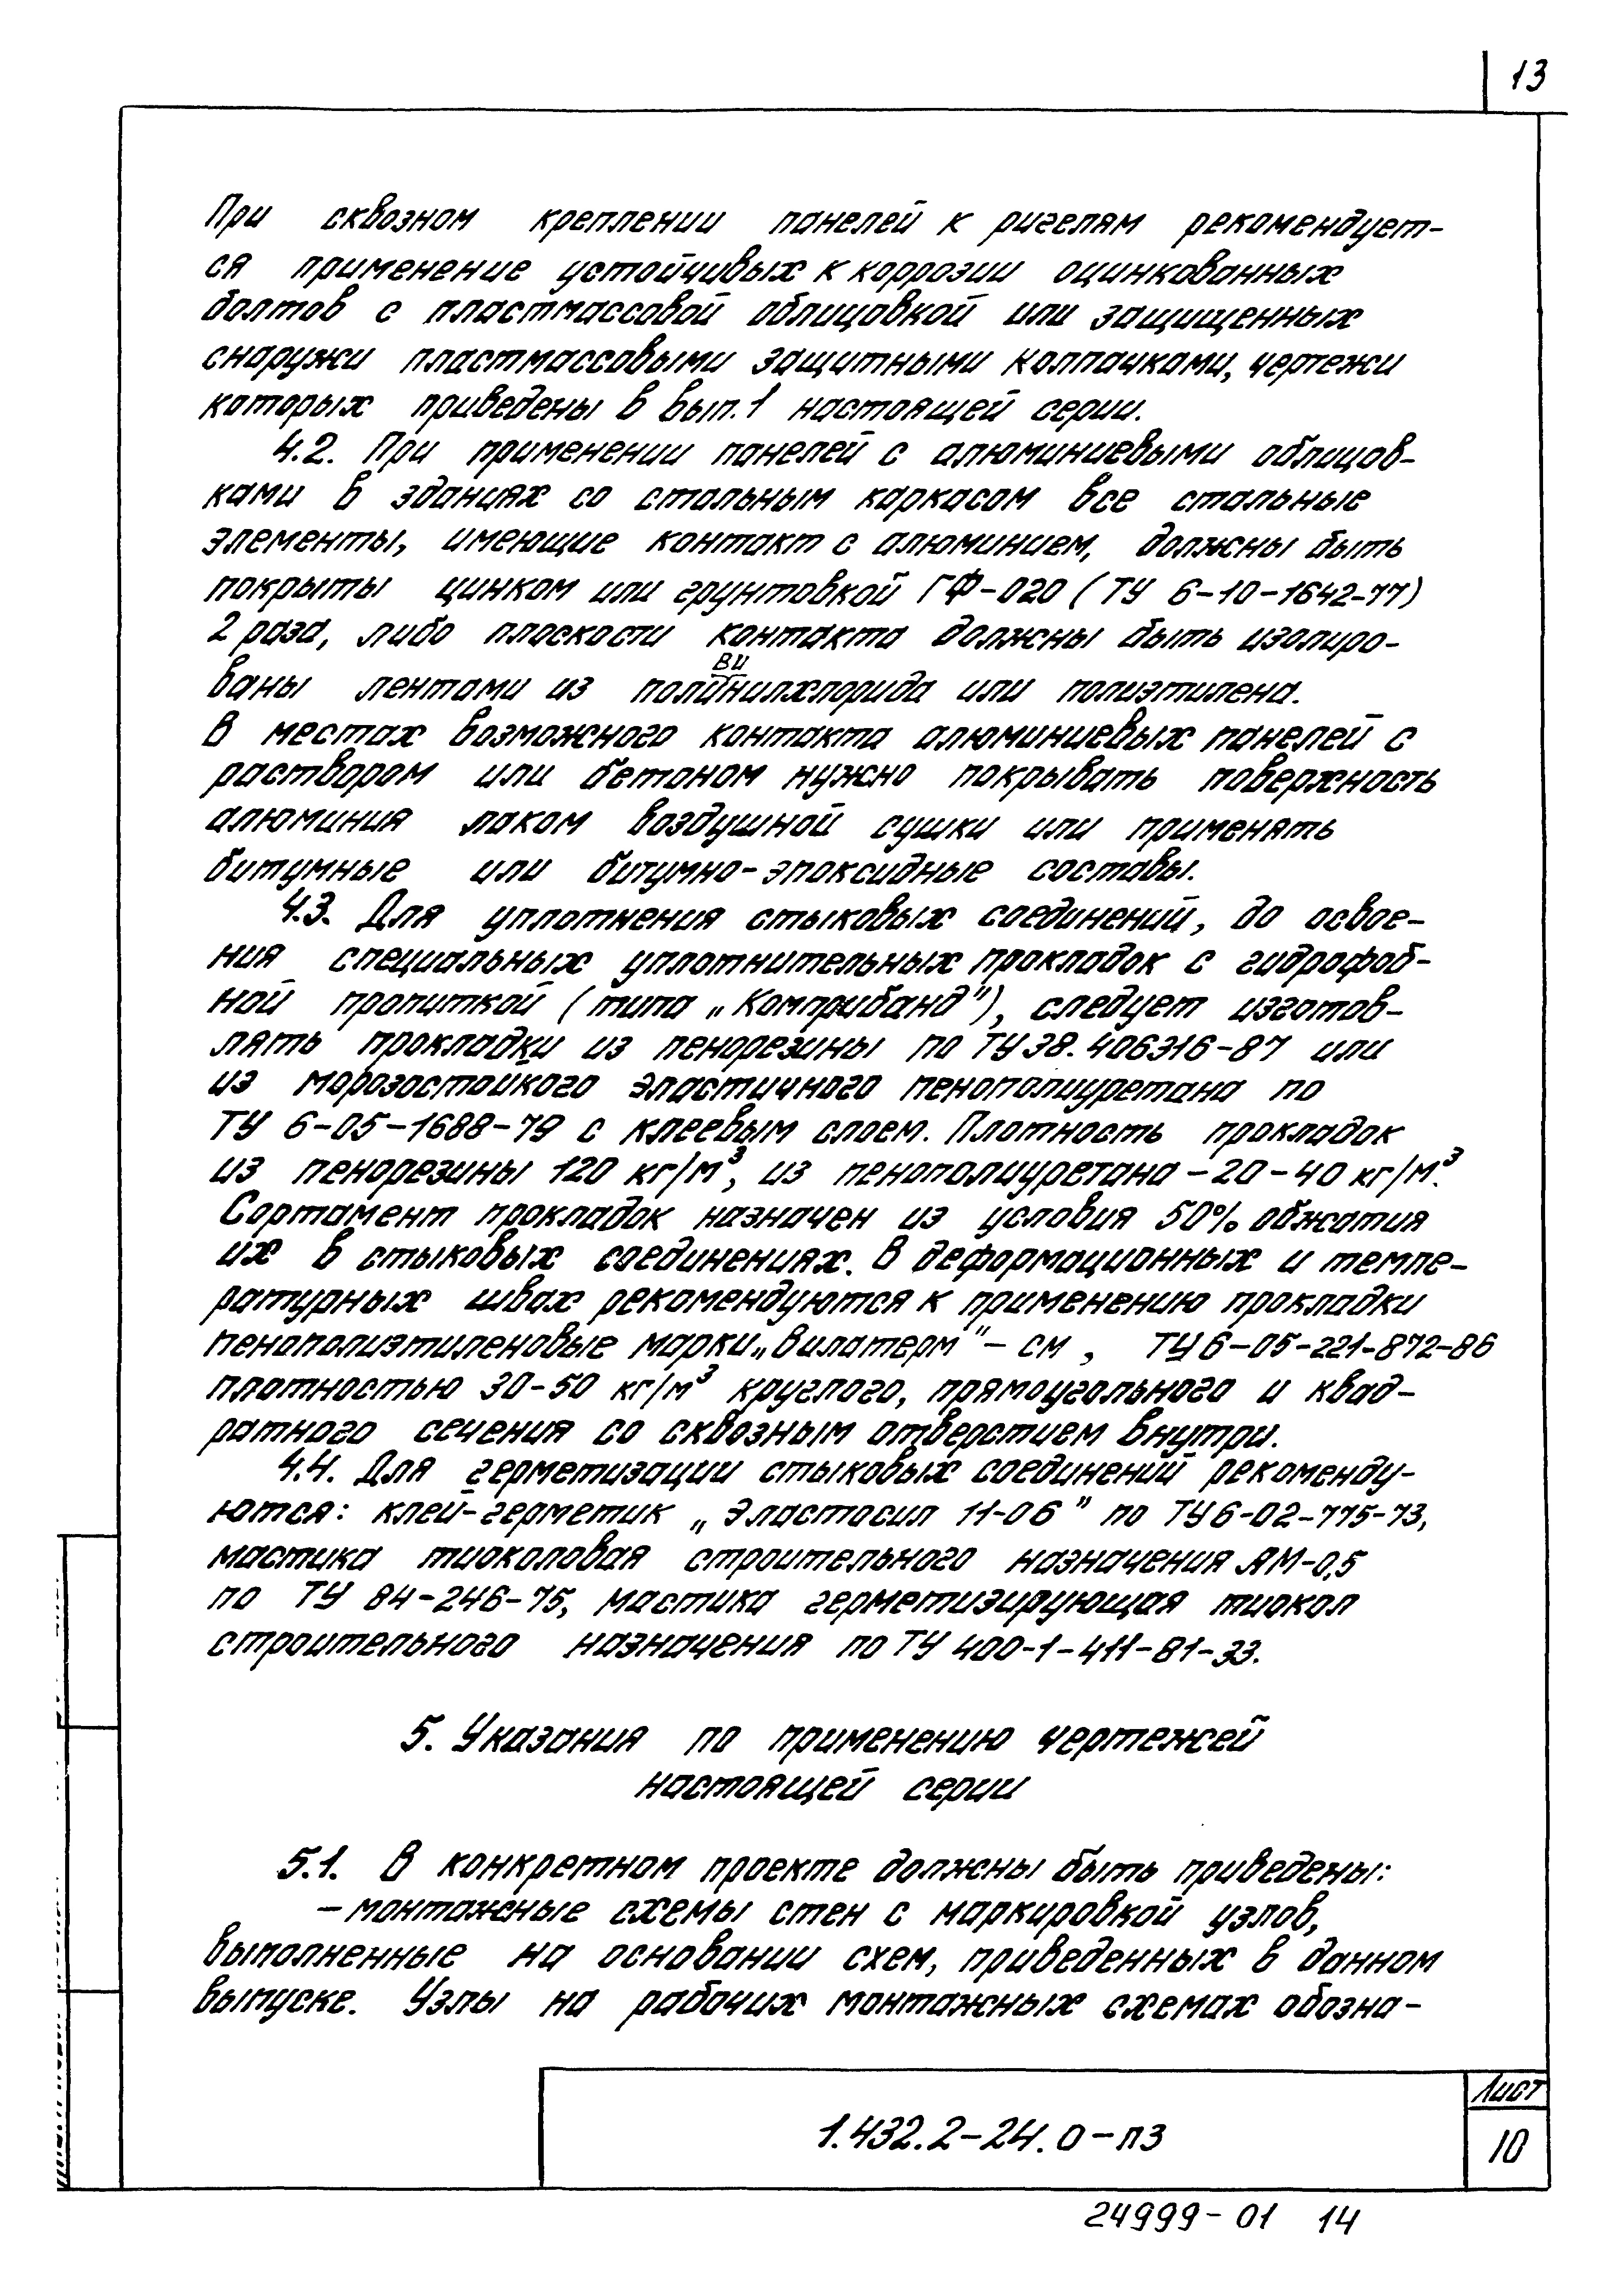 13
При сквозном креплении панелей к ригелям рекомендует-
ся применение устойчивых к коррозии оцинкованных
болтов с пластмассовой облицовкой или защищенных
снаружи пластмассовыми защитными колпачками, чертежи
которых приведены в вып.1 настоящей серии.
4.2. При применении панелей с алюминиевыми облицов-
ками в зданиях со стальным каркасом все стальные
элементы, имеющие контакт с алюминием, должны быть
покрыты цинком или грунтовкой ГФ-020 (ТУ 6-10-1642-77)
2 раза, либо плоскости контакта должны быть изолиро-
ви
ваны лентами из полинилхлорида или полиэтилена.
В местах возможного контакта алюминиевых панелей с
раствором или бетоном нужно покрывать поверхность
алюминия лаком воздушной сушки или применять
битумные или битумно-эпоксидные составы.
4.3. Для уплотнения стыковых соединений, до освое-
ния специальных уплотнительных прокладок с гидрофоб-
ной пропиткой (типа „Комприбанд"), следует изготов-
лять прокладки из пенорезины по ТУ 38.406316-87 или
из морозостойкого эластичного пенополиуретана по
ТУ 6-05-1688-79 с клеевым слоем. Плотность прокладок
из пенорезины 120 кг/м³, из пенополиуретана - 20-40 кг/м³.
Сортамент прокладок назначен из условия 50% обжатия
их в стыковых соединениях. В деформационных и темпе-
ратурных швах рекомендуются к применению прокладки
пенополиэтиленовые марки „Вилатерм"- см, ТУ 6-05-221-872-86
плотностью 30-50 кг/м³ круглого, прямоугольного и квад-
ратного сечения со сквозным отверстием внутри.
4.4. Для герметизации стыковых соединений рекоменду-
ются: клей-герметик „Эластосил 11-06" по ТУ 6-02-775-73,
мастика тиоколовая строительного назначения АМ-0,5
по ТУ 84-246-75, мастика герметизирующая тиокол
строительного назначения по ТУ 400-1-411-81-33.
5. Указания по применению чертежей
настоящей серии
5.1. В конкретном проекте должны быть приведены:
- монтажные схемы стен с маркировкой узлов,
выполненные на основании схем, приведенных в данном
выпуске. Узлы на рабочих монтажных схемах обозна-
1.432.2-24.0-ПЗ
Лист
10
24999-01 14